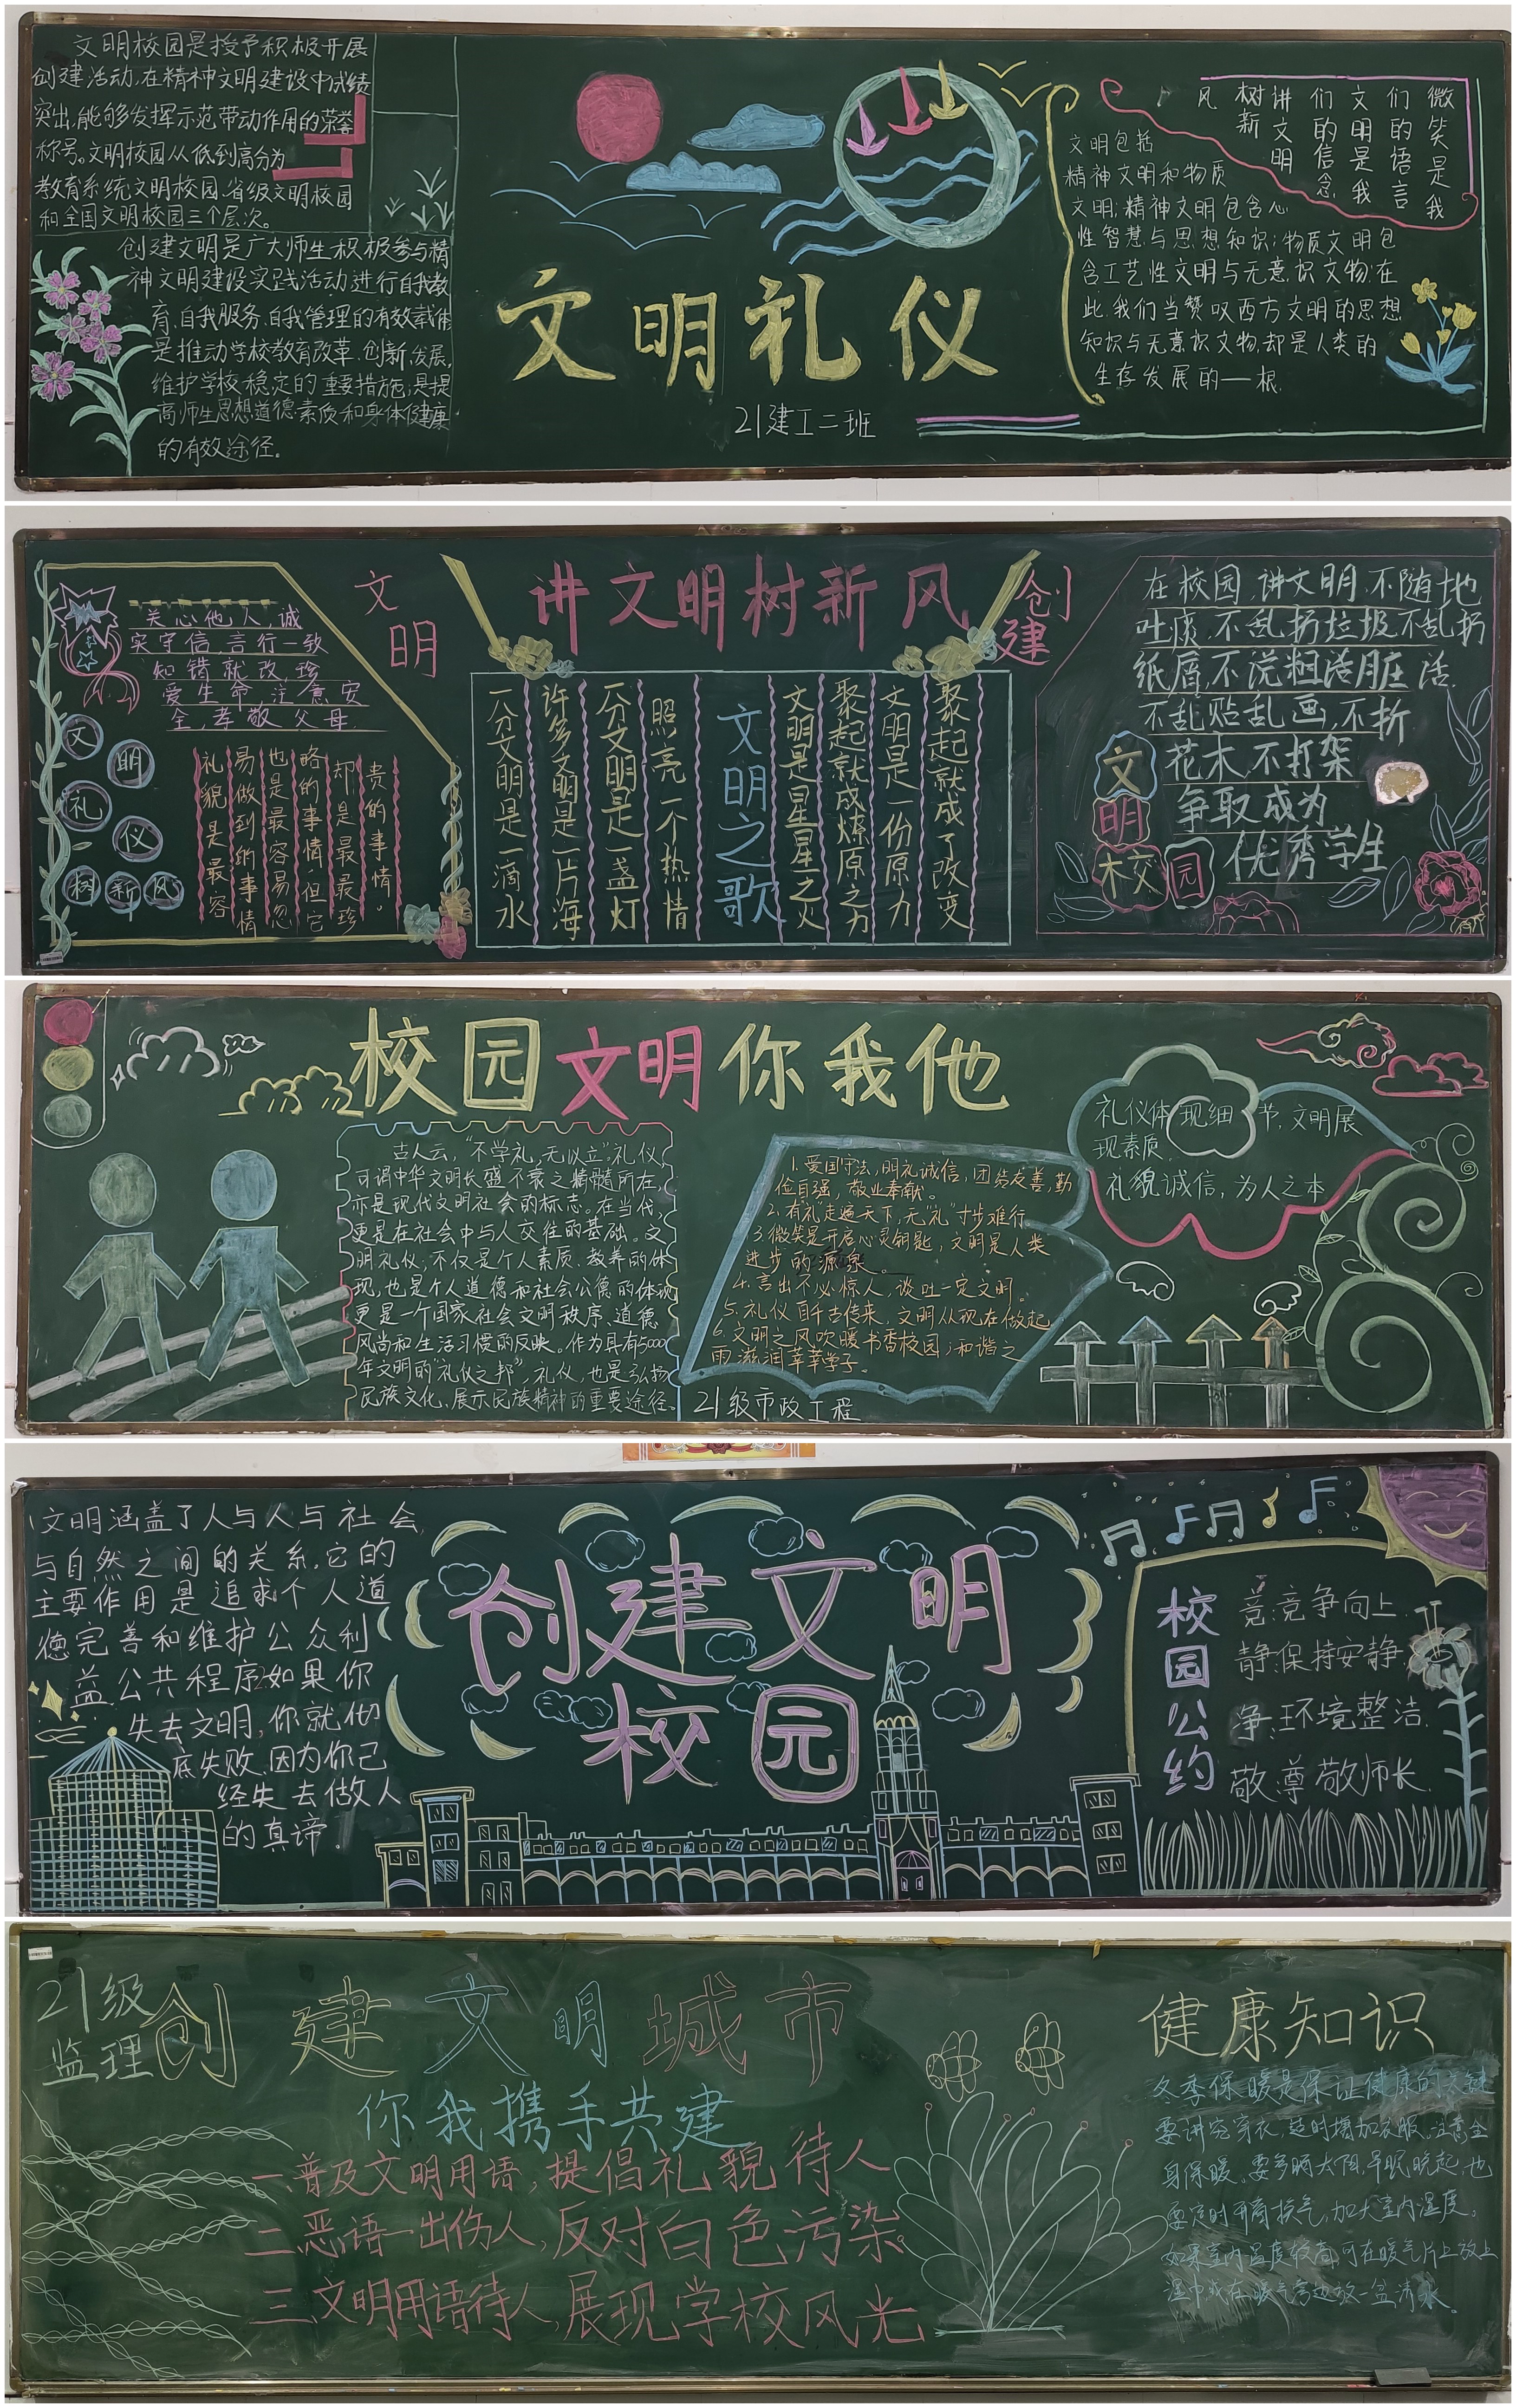 文明校园是授予积极开展
创建活动,在精神文明建设中成绩
突出,能够发挥示范带动作用的荣誉
称号。文明校园从低到高分为
教育系统文明校园、省级文明校园
和全国文明校园三个层次。
创建文明是广大师生积极参与精
神文明建设实践活动进行自我教
育、自我服务、自我管理的有效载体
是推动学校教育改革、创新、发展,
维护学校稳定的重要措施,是提
高师生思想道德素质和身体健康
的有效途径。
文明礼仪
21建工二班
微笑是我
们的语言
文明是我
们的信念
讲文明
树新
风
文明包括
精神文明和物质
文明;精神文明包含心
性智慧与思想知识;物质文明包
含工艺性文明与无意识文物.在
此,我们当赞叹西方文明的思想
知识与无意识文物,却是人类的
生存发展的一根.
文明
讲文明树新风
创建
关心他人,诚
实守信,言行一致
知错就改,珍
爱生命,注意安
全,孝敬父母.
文明礼仪
树新风
礼貌是最容
易做到的事情
也是最容易忽
略的事情,但它
却是最最珍
贵的事情。
聚起就成了改变
文明是一份原力
聚起就成燎原之力
文明是星星之火
文明之歌
照亮一个热情
一分文明是一盏灯
许多文明是一片海
一分文明是一滴水
在校园,讲文明,不随地
吐痰,不乱扔垃圾不乱扔
纸屑,不说粗话脏活
不乱贴乱画,不折
花木,不打架
争取成为
优秀学生
文明校园
校园文明你我他
古人云,“不学礼,无以立”,礼仪,
可谓中华文明长盛不衰之精髓所在,
亦是现代文明社会的标志。在当代,
更是在社会中与人交往的基础。文
明礼仪,不仅是个人素质、教养的体
现,也是个人道德和社会公德的体现
更是一个国家社会文明秩序、道德
风尚和生活习惯的反映。作为具有5000
年文明的“礼仪之邦”,礼仪,也是弘扬
民族文化、展示民族精神的重要途径。
1.爱国守法,明礼诚信,团结友善,勤
俭自强,敬业奉献。
2.有“礼”走遍天下,无“礼”寸步难行
3.微笑是开启心灵钥匙,文明是人类
进步的源泉。
4.言出不必惊人,谈吐一定文明。
5.礼仪自千古传来,文明从现在做起
6.文明之风吹暖书香校园;和谐之
雨滋润莘莘学子。
21级市政工程
礼仪体现细节,文明展
现素质,
礼貌诚信,为人之本
文明涵盖了人与人与社会,
与自然之间的关系,它的
主要作用是追求个人道
德完善和维护公众利
益,公共程序如果你
失去文明,你就彻
底失败,因为你已
经失去做人
的真谛.
创建文明
校园
校园公约
竞:竞争向上.
静:保持安静.
净:环境整洁.
敬:尊敬师长.
21级
监理
创建文明城市
你我携手共建
一、普及文明用语,提倡礼貌待人
二、恶语一出伤人,反对白色污染。
三、文明用语待人,展现学校风光
健康知识
冬季保暖是保证健康的关键
要讲究穿衣,适时增加衣服,注意全
身保暖。要多晒太阳,早眠晚起,也
要定时开窗换气,加大室内湿度。
如果室内温度较高,可在暖气片上放上
湿巾或在暖气旁边放一盆清水。